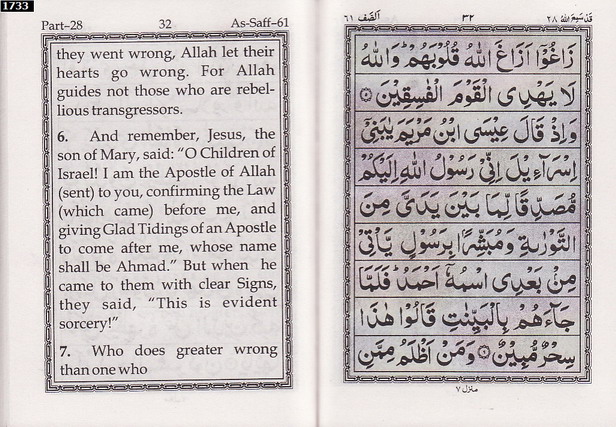 1733
Part–28 32 As-Saff–61
they went wrong, Allah let their
hearts go wrong. For Allah
guides not those who are rebel-
lious transgressors.
6. And remember, Jesus, the
son of Mary, said: “O Children of
Israel! I am the Apostle of Allah
(sent) to you, confirming the Law
(which came) before me, and
giving Glad Tidings of an Apostle
to come after me, whose name
shall be Ahmad.” But when he
came to them with clear Signs,
they said, “This is evident
sorcery!”
7. Who does greater wrong
than one who
الصَّف ٦١ ٣٢ قَدْ سَمِعَ اللهُ ٢٨
زَاغُوْٓا اَزَاغَ اللّٰهُ قُلُوْبَهُمْ ؕ وَاللّٰهُ
لَا يَهْدِى الْقَوْمَ الْفٰسِقِيْنَ ۝
وَاِذْ قَالَ عِيْسَى ابْنُ مَرْيَمَ يٰبَنِيْٓ
اِسْرَآءِيْلَ اِنِّيْ رَسُوْلُ اللّٰهِ اِلَيْكُمْ
مُّصَدِّقًا لِّمَا بَيْنَ يَدَيَّ مِنَ
التَّوْرٰىةِ وَمُبَشِّرًۢا بِرَسُوْلٍ يَّاْتِيْ
مِنْۢ بَعْدِى اسْمُهٗٓ اَحْمَدُ ؕ فَلَمَّا
جَآءَهُمْ بِالْبَيِّنٰتِ قَالُوْا هٰذَا
سِحْرٌ مُّبِيْنٌ ۝ وَمَنْ اَظْلَمُ مِمَّنِ
منزل ٧